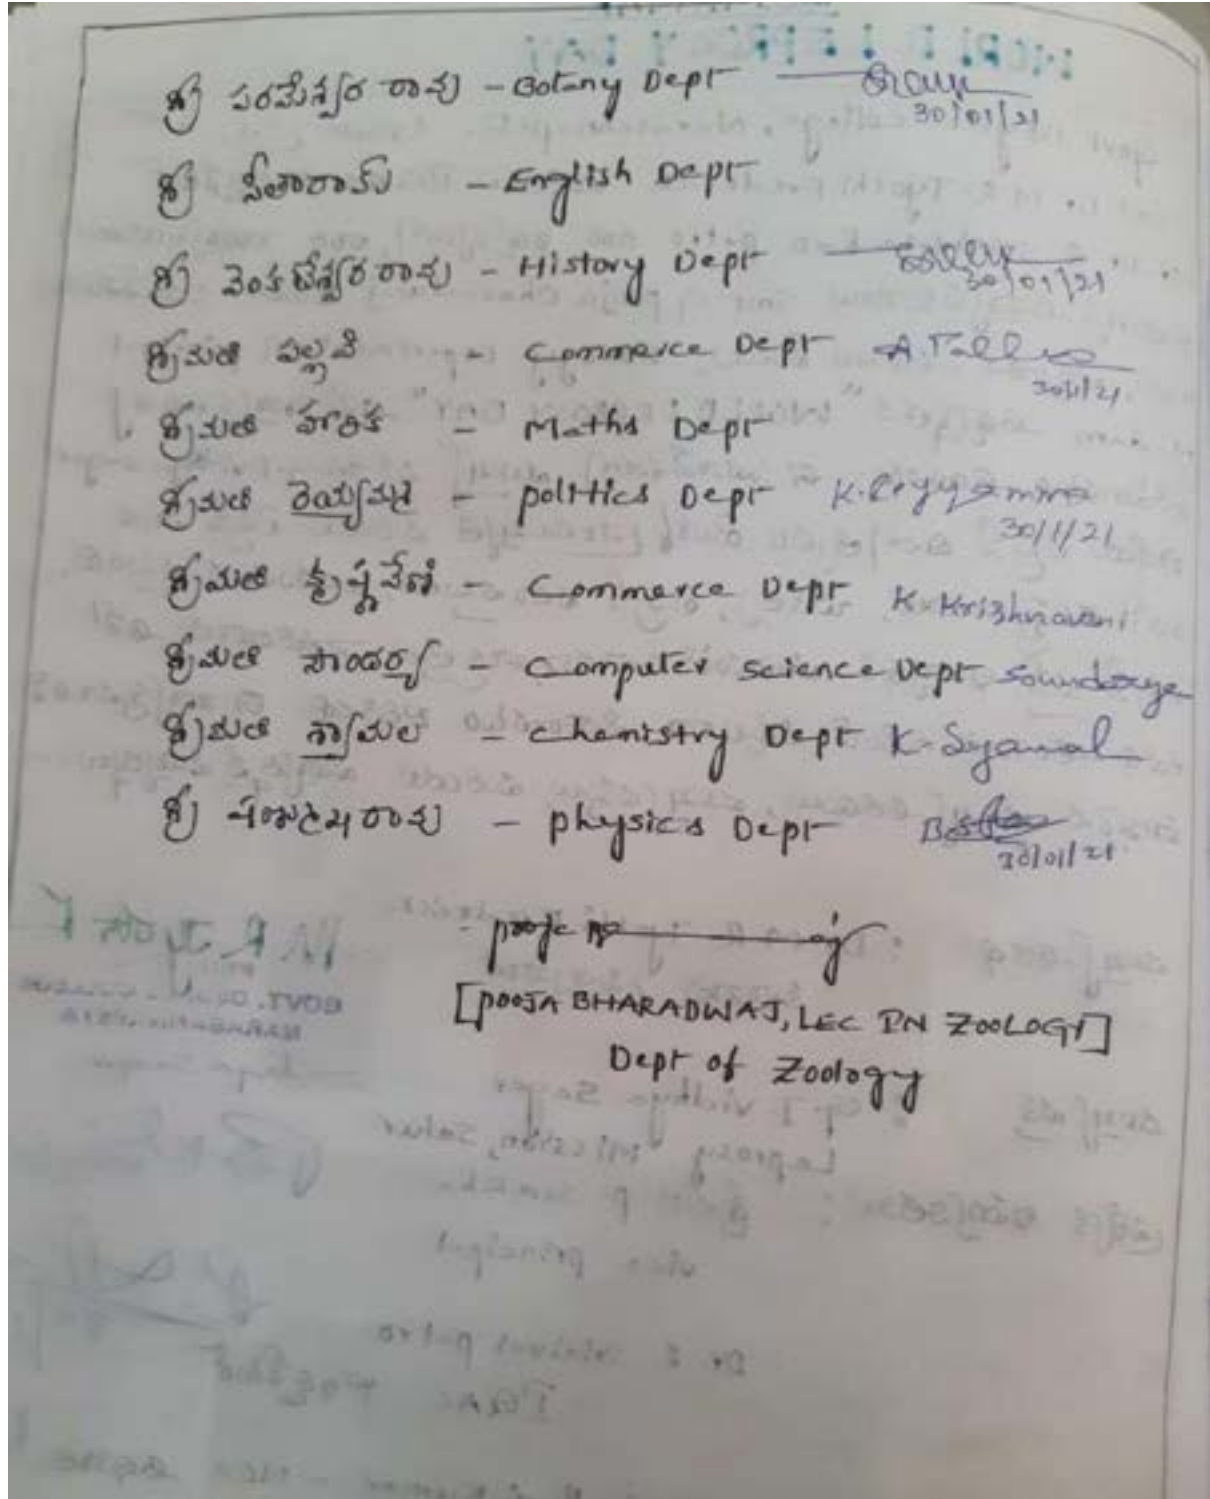 శ్రీ పరమేశ్వర రావు - Botany Dept
30/01/21
శ్రీ సీతారామ్ - English Dept
శ్రీ వెంకటేశ్వర రావు - History Dept
30/01/21
శ్రీమతి పల్లవి - Commerce Dept A.
30/1/21
శ్రీమతి హారిక - Maths Dept
శ్రీమతి రెయ్యమ్మ - politics Dept K. Reyyamma
30/1/21
శ్రీమతి కృష్ణవేణి - Commerce Dept K Krishnaveni
శ్రీమతి సౌందర్య - Computer science Dept Soundarya
శ్రీమతి శ్యామల - chemistry Dept K. Syamal
శ్రీ రావు - physics Dept
30/01/21
[POOJA BHARADWAJ, LEC IN ZOOLOGY]
Dept of Zoology